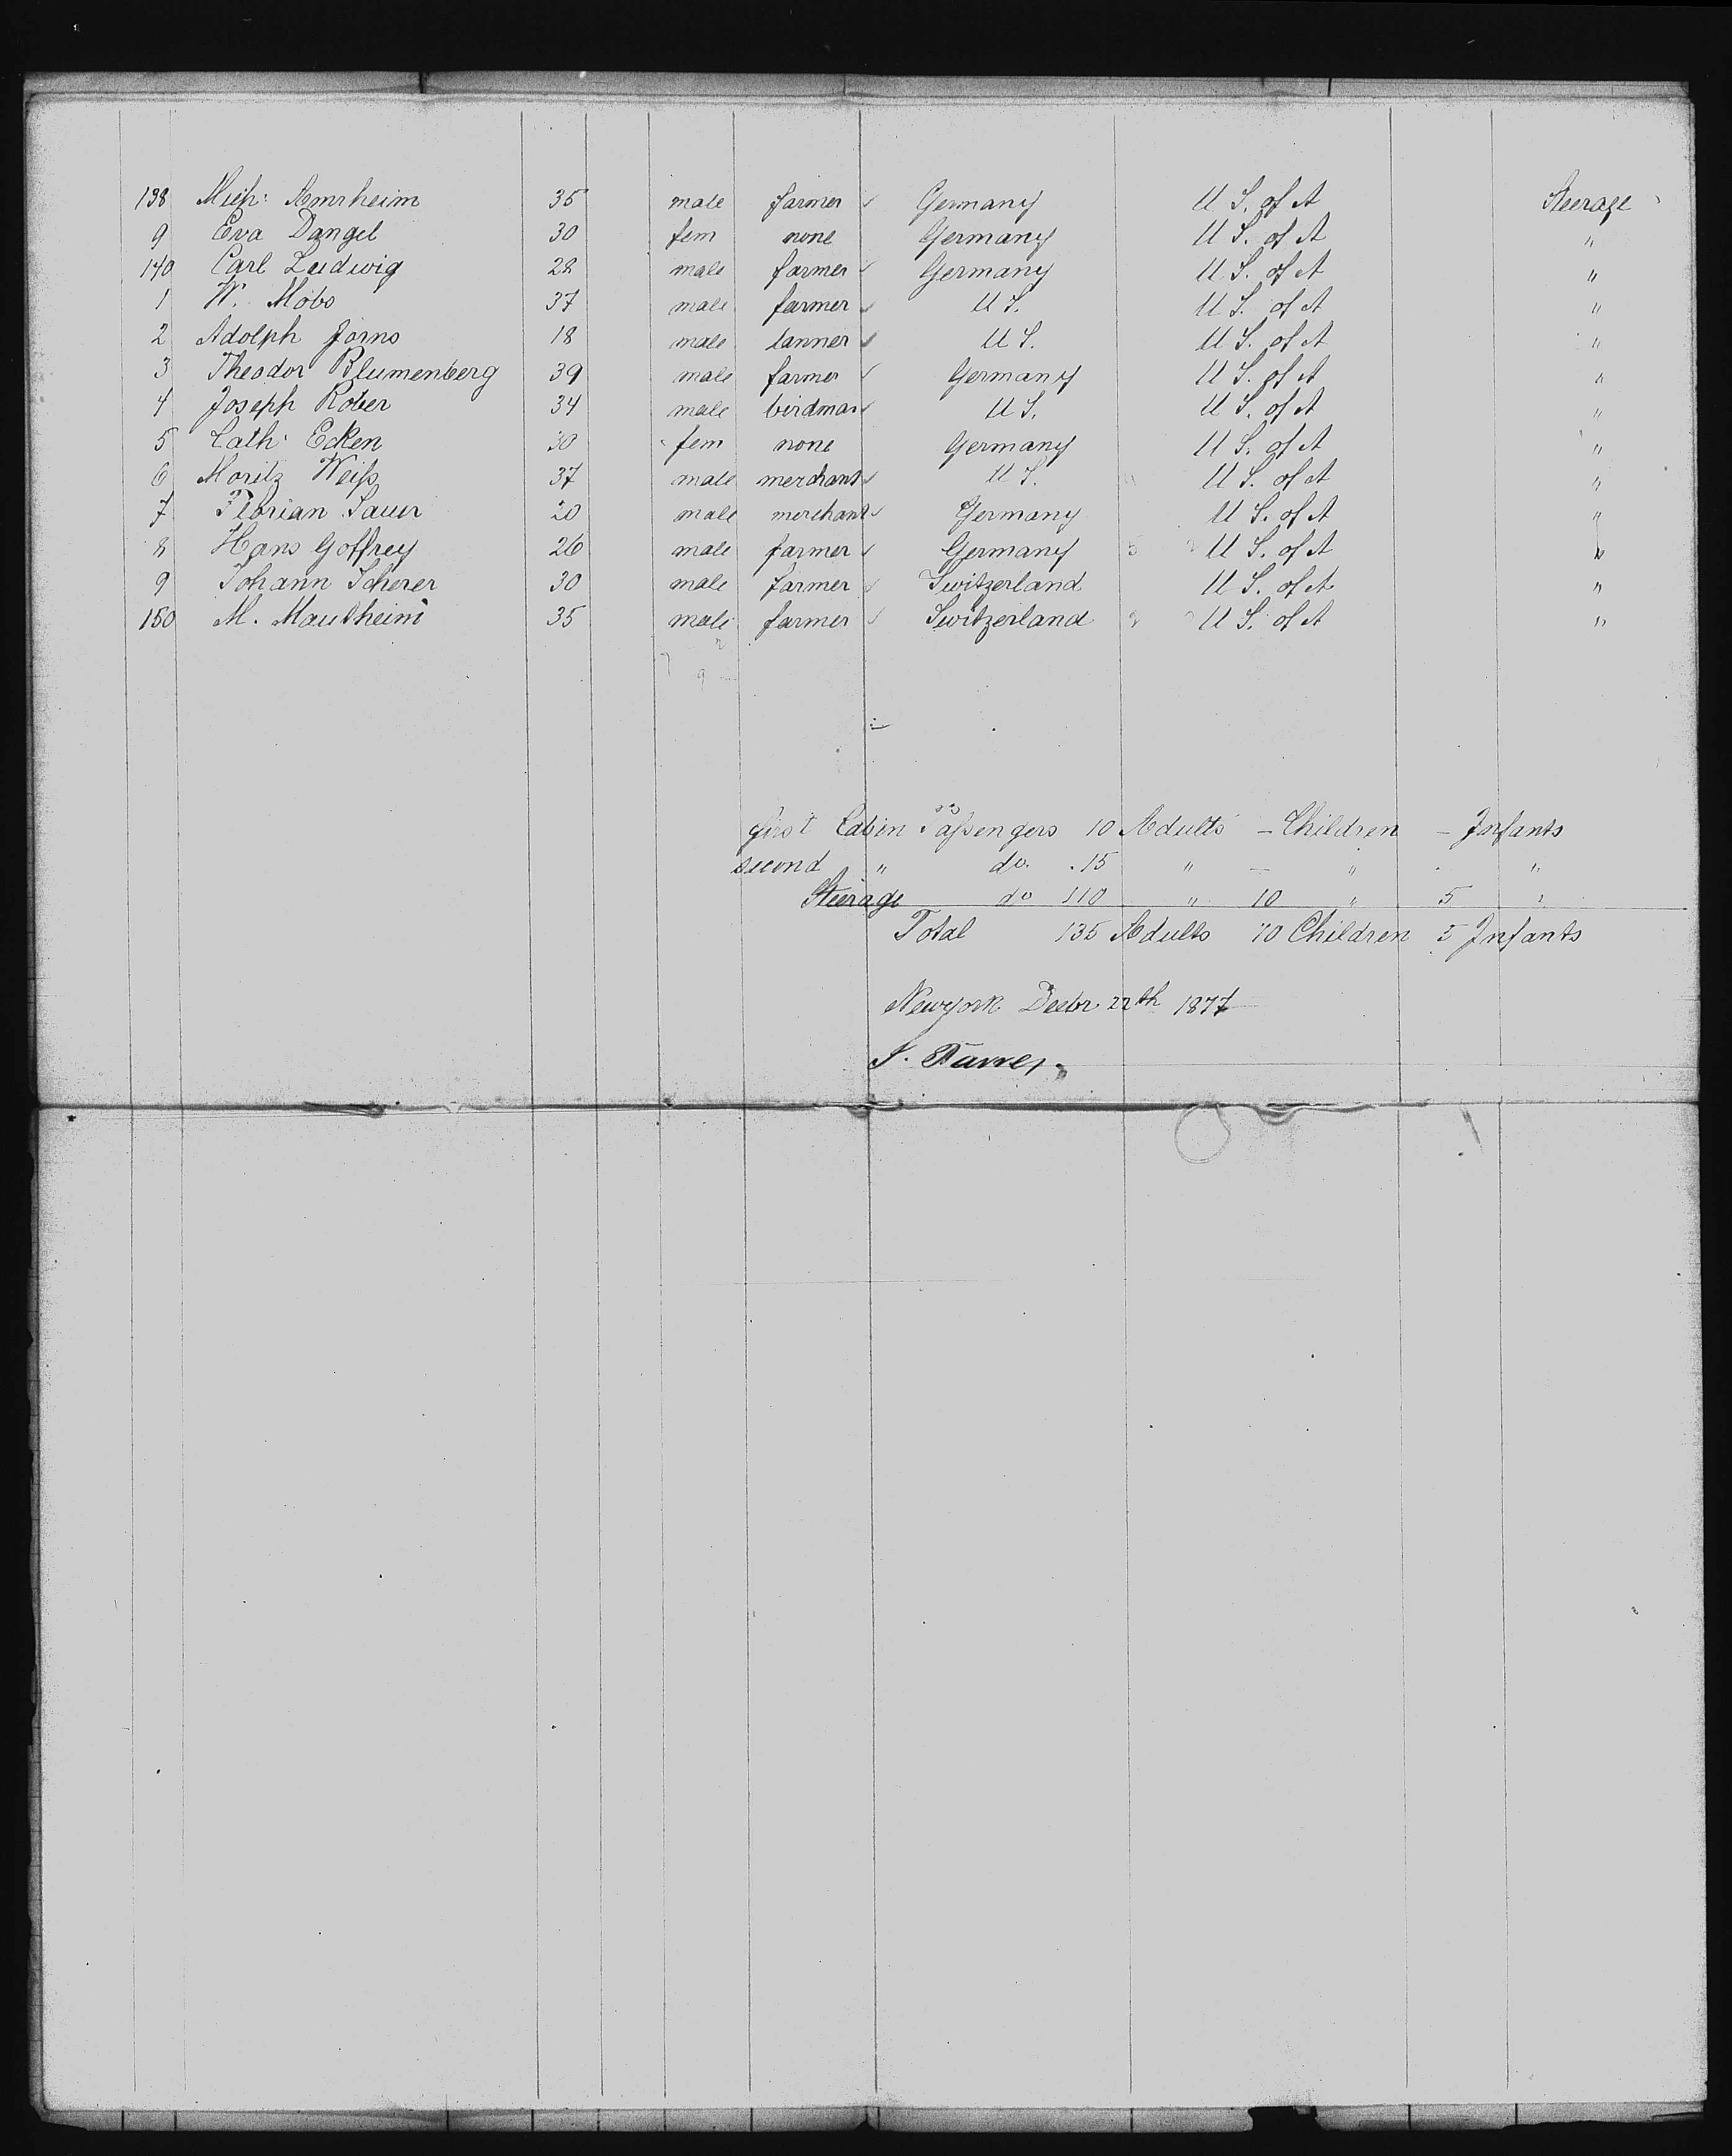 138 Mich: Amrheim 35 male farmer Germany U S. of A Steerage
9 Eva Dangel 30 fem none Germany U S. of A "
140 Carl Ludwig 22 male farmer Germany U S. of A "
1 W. Möbs 37 male farmer U S. U S. of A "
2 Adolph Jorns 18 male tanner U S. U S. of A "
3 Theodor Blumenberg 39 male farmer Germany U S. of A "
4 Joseph Rober 34 male birdman U S. U S. of A "
5 Cath: Ecken 30 fem none Germany U S. of A "
6 Moritz Weiß 37 male merchant U S. U S. of A "
7 Sauer 20 male merchant Germany U S. of A "
8 Hans Goffrey 26 male farmer Germany U S. of A "
9 Johann Scherer 30 male farmer Switzerland U S. of A "
150 M. Mautheim 35 male farmer Switzerland U S. of A "
first Cabin Paßengers 10 Adults – Children – Infants
second " do. 15 " – " - "
Steerage do 110 " 10 " 5 "
Total 135 Adults 10 Children 5 Infants
Newyork Decbr 22th 1877